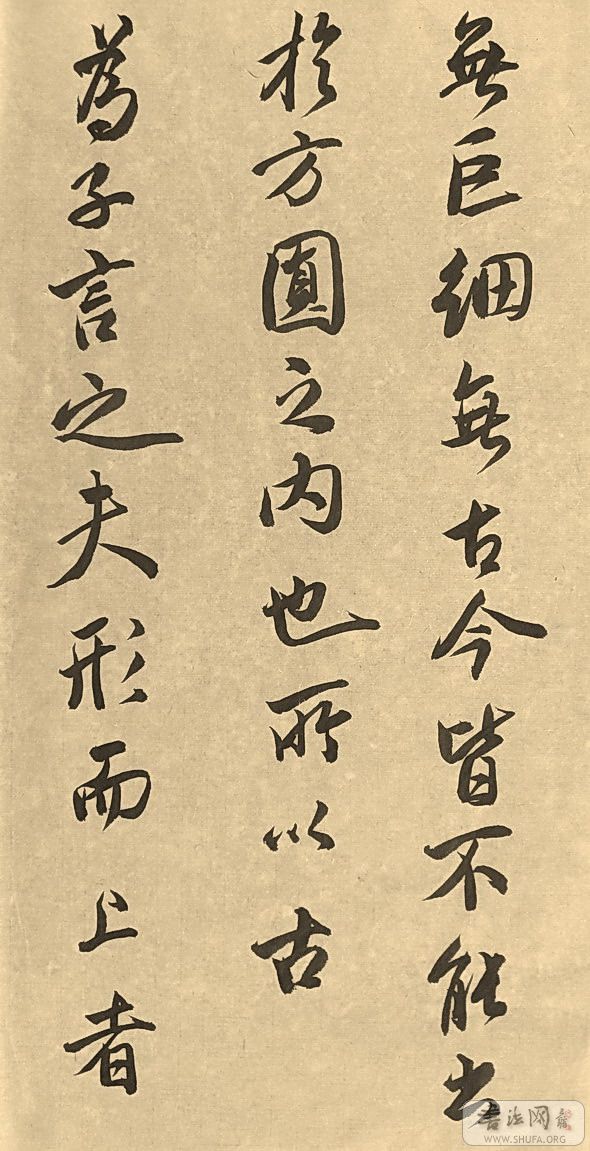 無巨細無古今皆不能出
於方圓之内也所以古
為子言之夫形而上者
書法网
WWW.SHUFA.ORG